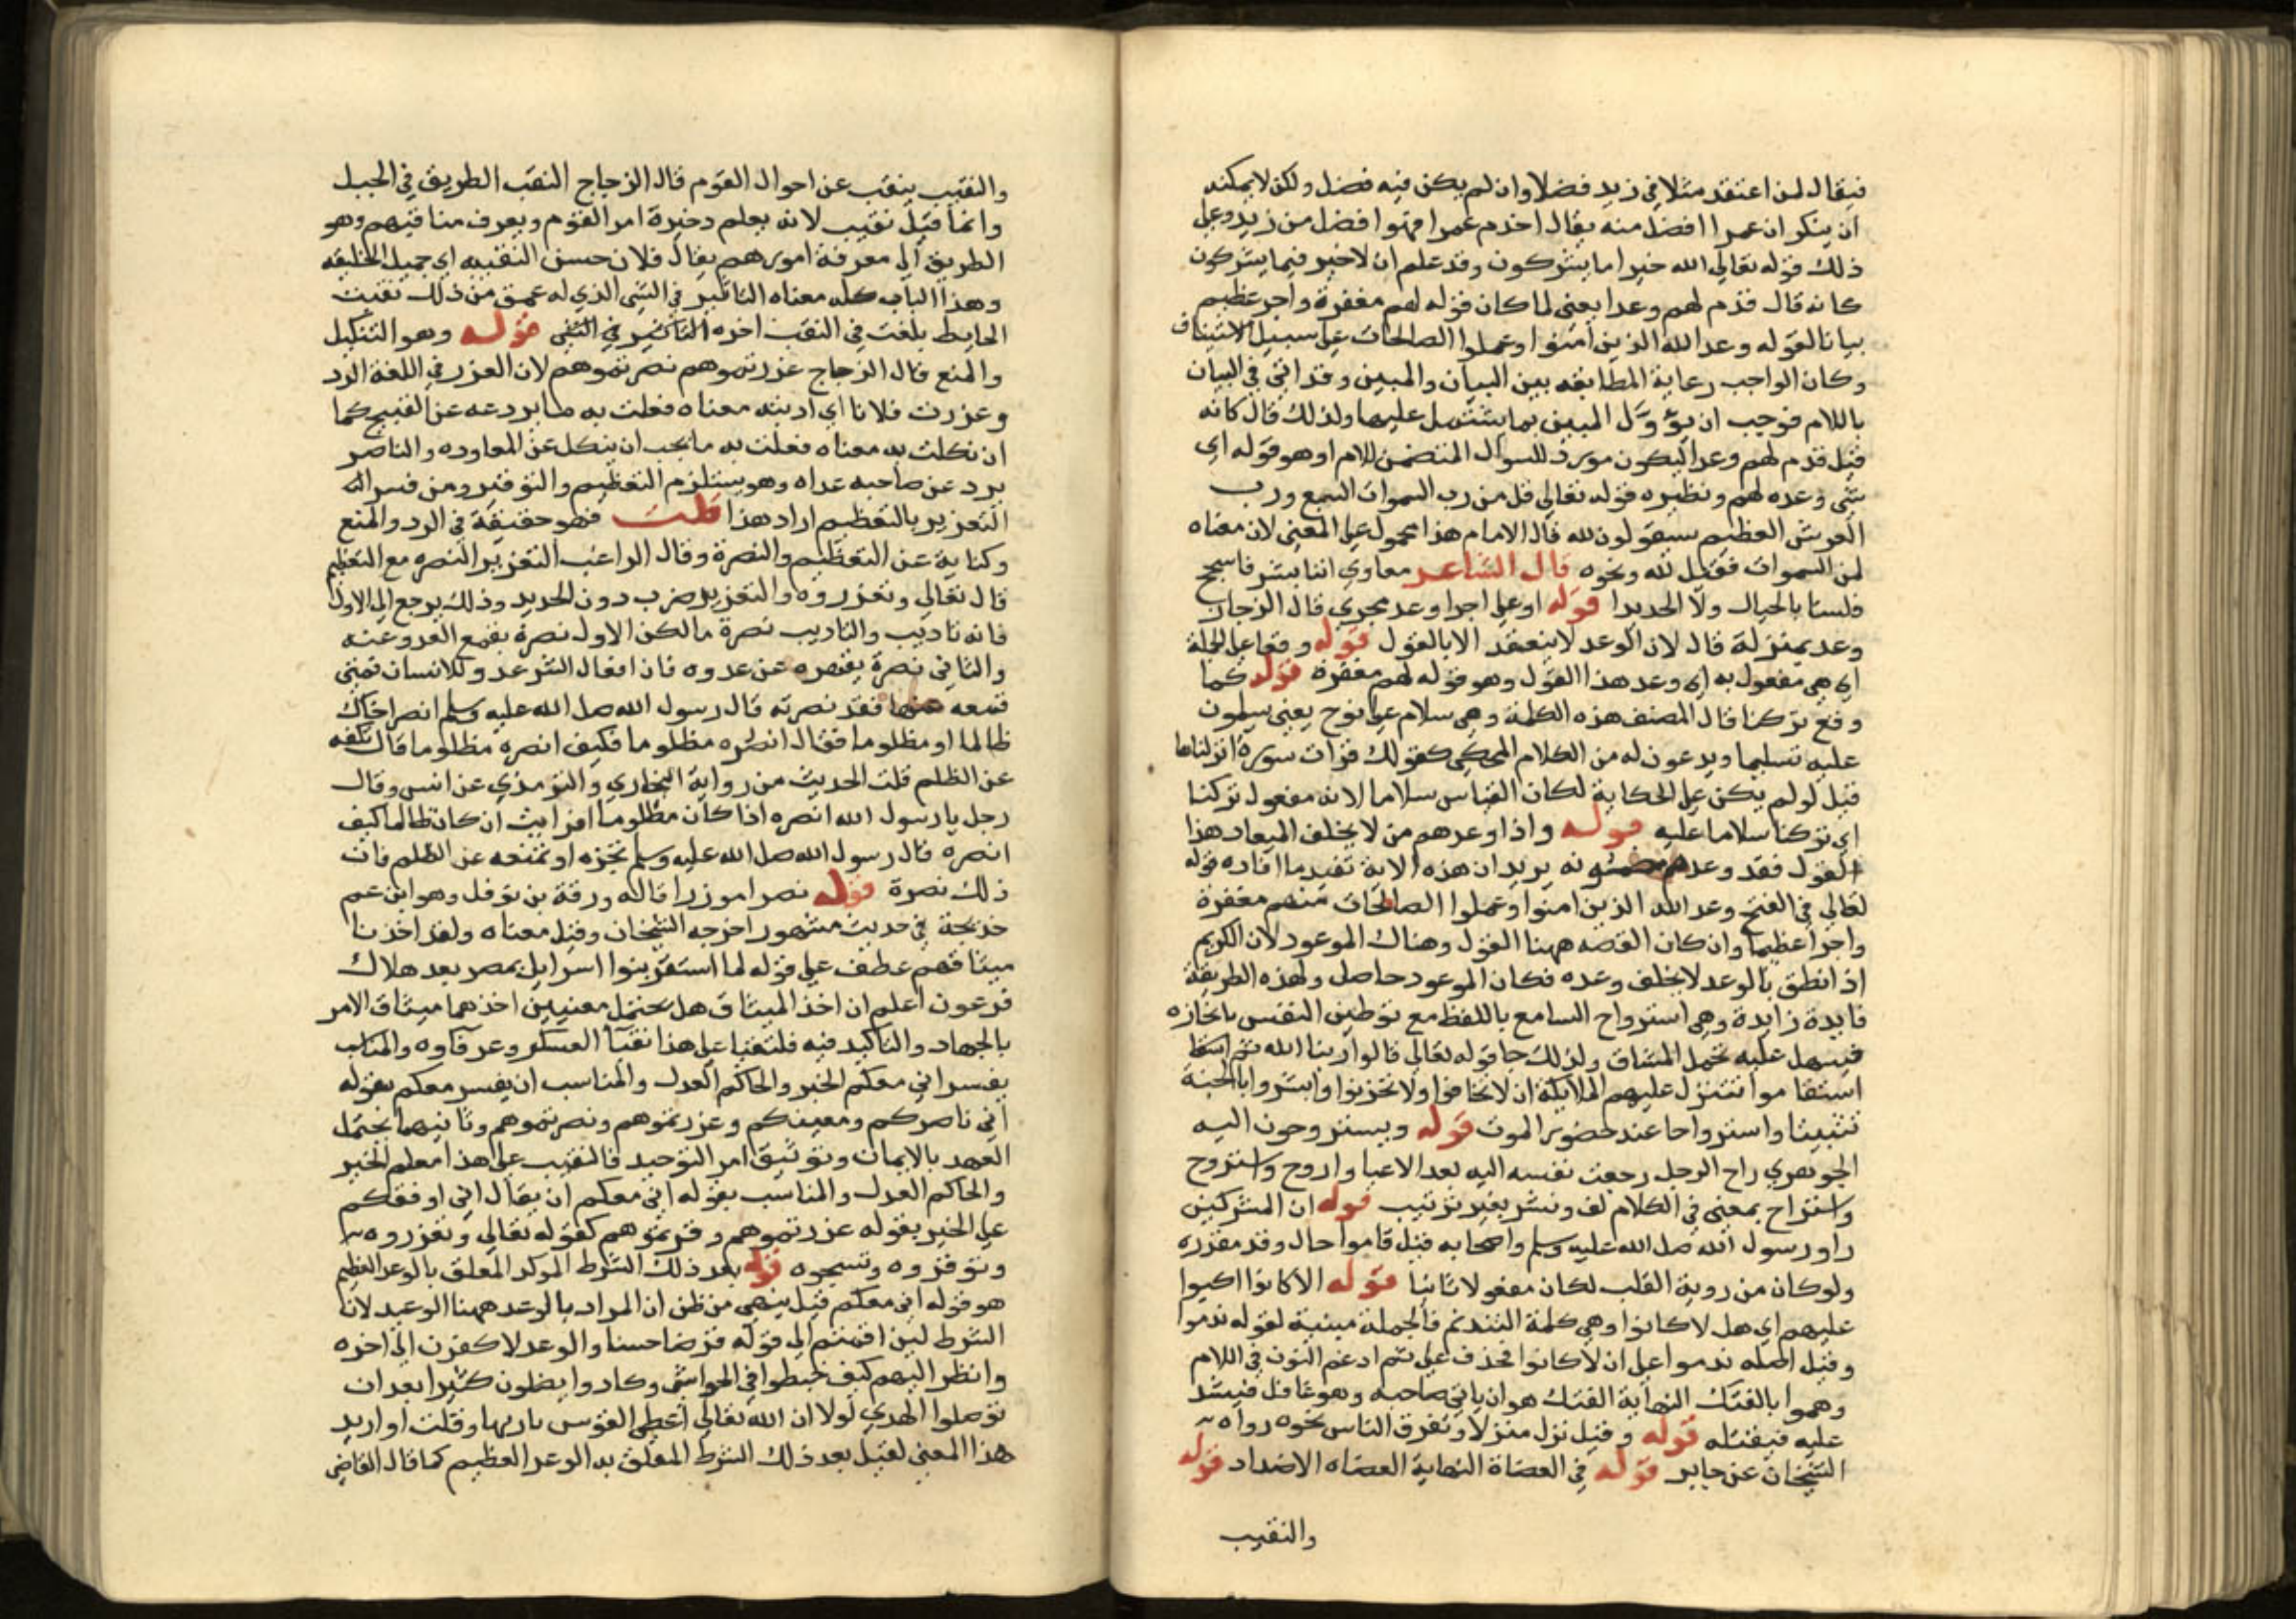 فيقال لمن اعتقد مثلا في زيد فضلا وان لم يكن فيه فضل ولكن لا يمكنه
ان ينكر ان عمرا افضل منه يقال اخدم عمرا فهو افضل من زيد وعلى
ذلك قوله تعالى الله خير اما يشركون وقد علم ان لا خير فيما يشركون
كانه قال قدم لهم وعدا يعنى لما كان قوله لهم مغفرة واجر عظيم
بيانا لقوله وعد الله الذين امنوا وعملوا الصالحات على سبيل الاستيناف
وكان الواجب رعاية المطابقه بين البيان والمبين وقد اتى في البيان
باللام فوجب ان يؤوّل المبين بما يشتمل عليها ولذلك قال كانه
قيل قدم لهم وعدا ليكون مورد للسوال المتضمن للام او هو قوله اى
شى وعده لهم ونظيره قوله تعالى قل من رب السموات السبع ورب
العرش العظيم سيقولون لله قال الامام هذا محمول على المعنى لان معناه
لمن السموات فقيل لله ونحوه قال الشاعر معاوي اننا بشر فاسجح
فلسنا بالجبال ولا الحديدا قوله او على اجرا وعد مجرى قال الزجاج
وعد بمنزلة قال لان الوعد لا ينعقد الا بالقول قوله وقعا على الجملة
اى هي مفعول به اى وعد هذا القول وهو قوله لهم مغفرة قوله كما
وقع تركنا قال المصنف هذه الكلمة وهى سلام على نوح يعنى يسلمون
عليه تسليما ويدعون له من الكلام المحكى كقولك قرات سورة انزلناها
قيل لو لم يكن على الحكاية لكان القياس سلاما لانه مفعول تركنا
اى تركنا سلاما عليه قوله واذا وعدهم من لا يخلف الميعاد هذا
القول فقد وعدهم يريد ان هذه الاية تفيد ما افاده قوله
تعالى في الفتح وعد الله الذين امنوا وعملوا الصالحات منهم مغفرة
واجرا عظيما وان كان القصه ههنا القول وهناك الموعود لان الكريم
اذا نطق بالوعد لا يخلف وعده فكان الموعود حاصل ولهذه الطريقة
فايدة زايدة وهى استرواح السامع باللفظ مع توطين النفس بانجازه
فيسهل عليه تحمل المشاق ولذلك جا قوله تعالى قالوا ربنا الله ثم
استقاموا تتنزل عليهم الملايكة ان لا تخافوا ولا تحزنوا وابشروا بالجنة
تثبيتا واسترواحا عند حضور الموت قوله ويستروحون اليه
الجوهري راح الرجل رجعت نفسه اليه بعد الاعيا واروح واستروح
واستراح بمعنى في الكلام لف ونشر بغير ترتيب قوله ان المشركين
راو رسول الله صلى الله عليه وسلم واصحابه قيل قاموا حال وقد مقدره
ولو كان من روية القلب لكان مفعولا ثانيا قوله الا كانوا اكبوا
عليهم اى هل لا كانوا وهى كلمة التندم فالجملة مبينة لقوله ندموا
وقيل اصله ندموا على ان لا كانوا فحذف على ثم ادغم النون في اللام
وهموا بالفتك النهاية الفتك هو ان ياتى صاحبه وهو غافل فيشد
عليه فيقتله قوله وقيل نزل منزلا وتفرق الناس نحوه رواه
الشيخان عن جابر قوله في العضاة النهاية العضاه الاضداد قوله
والنقيب
والنقيب ينقب عن احوال القوم قال الزجاج النقب الطريق في الجبل
وانما قيل نقيب لانه يعلم دخيرة امر القوم ويعرف مناقبهم وهو
الطريق الى معرفة امورهم يقال فلان حسن النقيبه اى جميل الخليقه
وهذا الباب كله معناه التاثير في الشى الذي له عمق من ذلك نقبت
الحايط بلغت في النقب اخره التاثير في الشى قوله وهو التنكيل
والمنع قال الزجاج عزرتموهم نصرتموهم لان العزر في اللغة الرد
وعزرت فلانا اى ادبته معناه فعلت به ما يردعه عن القبيح كما
ان نكلت به معناه فعلت به ما يجب ان ينكل عن المعاوده والناصر
يرد عن صاحبه عداه وهو يستلزم التعظيم والتوقير ومن فسر
التعزير بالتعظيم اراد هذا قلت فهو حقيقة في الرد والمنع
وكناية عن التعظيم والنصرة وقال الراغب التعزير النصره مع التعظيم
قال تعالى وتعزروه والتعزير ضرب دون الحديد وذلك يرجع الى الاول
فانه تاديب والتاديب نصرة ما لكن الاول نصرة بقمع العدو عنه
والثانى نصرة بقهره عن عدوه فان افعال الشر عدو للانسان فمتى
قمعه عنها فقد نصرته قال رسول الله صلى الله عليه وسلم انصر اخاك
ظالما او مظلوما فقال انصره مظلوما فكيف انصره مظلوما قال تكفه
عن الظلم قلت الحديث من رواية البخاري والترمذي عن انس وقال
رجل يا رسول الله انصره اذا كان مظلوما افرايت ان كان ظالما كيف
انصره قال رسول الله صلى الله عليه وسلم تحجزه او تمنعه عن الظلم فان
ذلك نصرة قوله نصرا موزرا قاله ورقة بن نوفل وهو ابن عم
خديجة في حديث مشهور اخرجه الشيخان وقيل معناه ولقد اخذنا
ميثاقهم عطف على قوله لما استقر بنوا اسرايل بمصر بعد هلاك
فرعون اعلم ان اخذ الميثاق هل يحتمل معنيين احدهما ميثاق الامر
بالجهاد والتاكيد فيه فالنقبا على هذا نقبآ العسكر وعرفآوه والمناسب
يفسر انى معكم الخبر والحاكم العدل والمناسب ان يفسر معكم بقوله
انى ناصركم ومعينكم وعزرتموهم ونصرتموهم وثانيهما يحتمل
العهد بالايمان وتوثيق امر التوحيد فالنقيب على هذا معلم الخير
والحاكم العدل والمناسب بقوله انى معكم ان يقال انى اوفقكم
على الخير بقوله عزرتموهم وقويتموهم كقوله تعالى وتعزروه
وتوقروه وتسبحوه قوله بعد ذلك الشرط الموكد المعلق بالوعد العظيم
هو قوله انى معكم قيل ينبهى من ظن ان المراد بالوعد ههنا الوعيد لان
الشرط لين اقمتم الى قوله قرضا حسنا والوعد لاكفرن الى اخره
وانظر اليهم كيف خبطوا في الحواشى وكادوا يضلون كثيرا بعد ان
توصلوا الهدى لولا ان الله تعالى اعطى القوس باريها وقلت او اريد
هذا المعنى لقيل بعد ذلك الشرط المعلق به الوعد العظيم كما قال القاضى